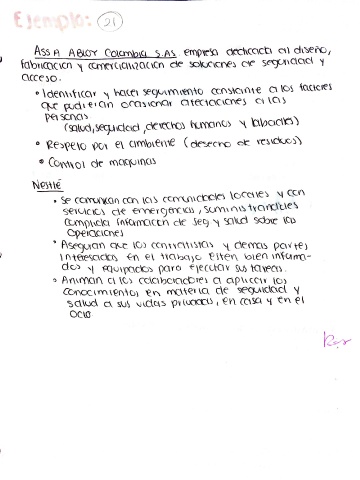 Ejemplo: 21
ASSA ABLOY Colombia S.AS. empresa dedicada al diseño,
fabricación y comercialización de soluciones de seguridad y
acceso.
• Identificar y hacer seguimiento constante a los factores
que pudieran ocasionar afectaciones a las
personas
(salud, seguridad, derechos humanos y laborales)
• Respeto por el ambiente (desecho de residuos)
• Control de maquinas
Nestlé
• Se comunican con las comunidades locales y con
servicios de emergencias, suministrandoles
completa información de seg y salud sobre las
operaciones
• Aseguran que los contratistas y demas partes
interesadas en el trabajo esten bien informa-
dos y equipados para ejecutar sus tareas.
• Animan a los colaboradores a aplicar los
conocimientos en materia de seguridad y
salud a sus vidas privadas, en casa y en el
ocio